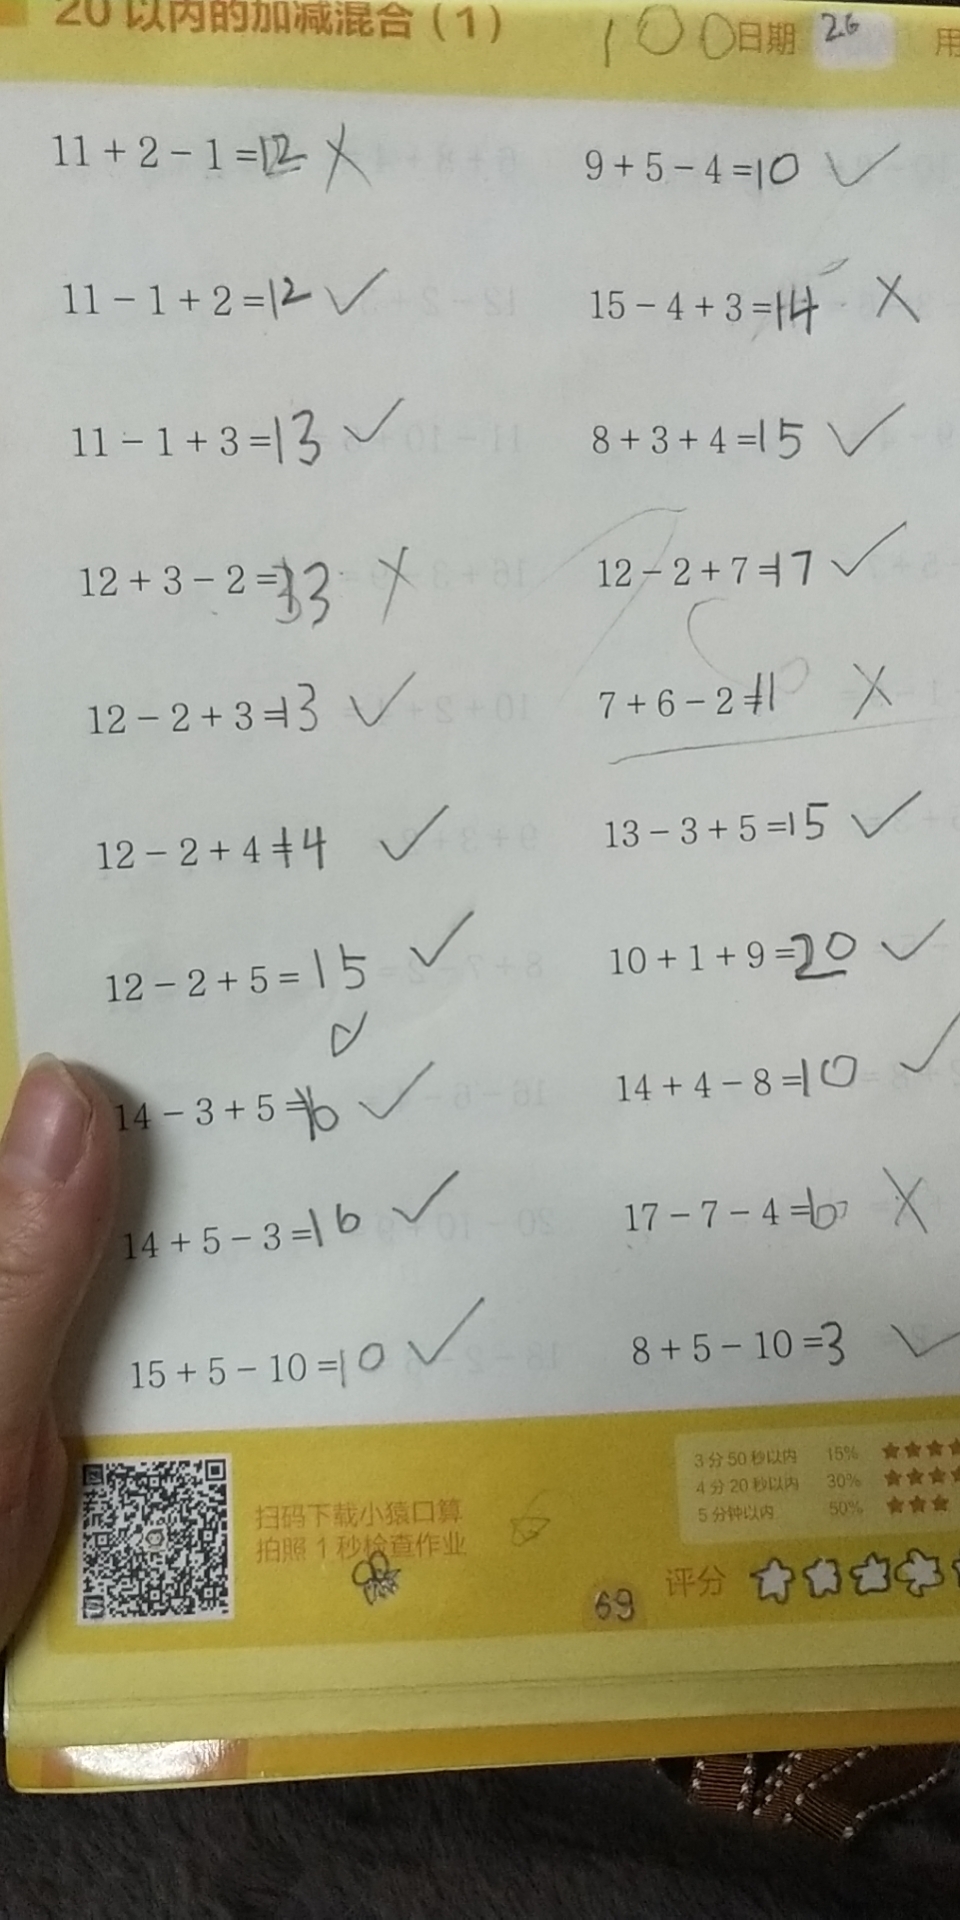 20以内的加减混合（1） 100 日期 26 用
11 + 2 − 1 =12 ✗
9 + 5 − 4 =10 ✓
11 − 1 + 2 =12 ✓
15 − 4 + 3 =14 ✗
11 − 1 + 3 =13 ✓
8 + 3 + 4 =15 ✓
12 + 3 − 2 =13 ✗
12 − 2 + 7 =17 ✓
12 − 2 + 3 =13 ✓
7 + 6 − 2 =11 ✗
12 − 2 + 4 =14 ✓
13 − 3 + 5 =15 ✓
12 − 2 + 5 = 15 ✓
10 + 1 + 9 =20 ✓
14 − 3 + 5 =16 ✓
14 + 4 − 8 =10 ✓
14 + 5 − 3 =16 ✓
17 − 7 − 4 =6 ✗
15 + 5 − 10 =10 ✓
8 + 5 − 10 =3 ✓
扫码下载小猿口算
拍照 1 秒检查作业
3 分 50 秒以内 15% ★★★★
4 分 20 秒以内 30% ★★★★
5 分钟以内 50% ★★★
评分
69